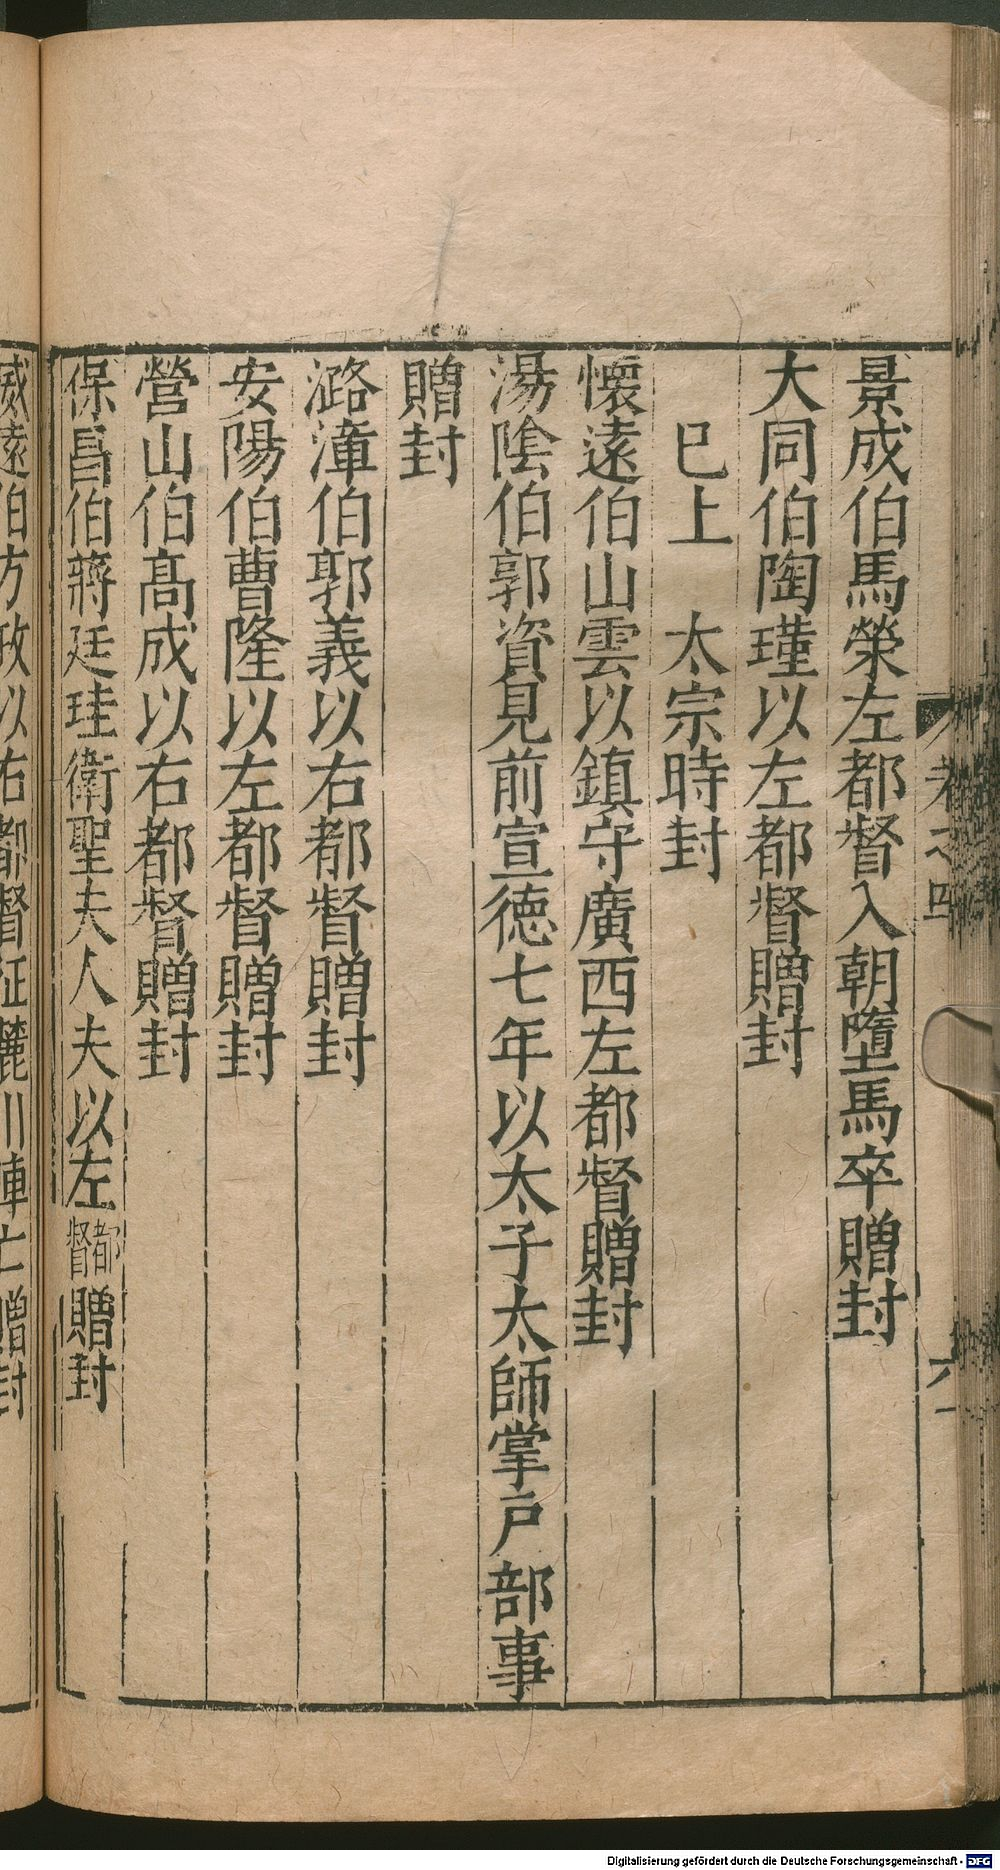 景成伯馬榮左都督入朝墮馬卒贈封
大同伯陶瑾以左都督贈封
巳上　太宗時封
懷遠伯山雲以鎮守廣西左都督贈封
湯陰伯郭資見前宣德七年以太子太師掌戸部事
贈封
潞漳伯郭義以右都督贈封
安陽伯曹隆以左都督贈封
營山伯髙成以右都督贈封
保昌伯蔣廷珪衛聖夫人夫以左都督贈封
威遠伯方政以右都督征麓川陣亡贈封
Digitalisierung gefördert durch die Deutsche Forschungsgemeinschaft - DFG